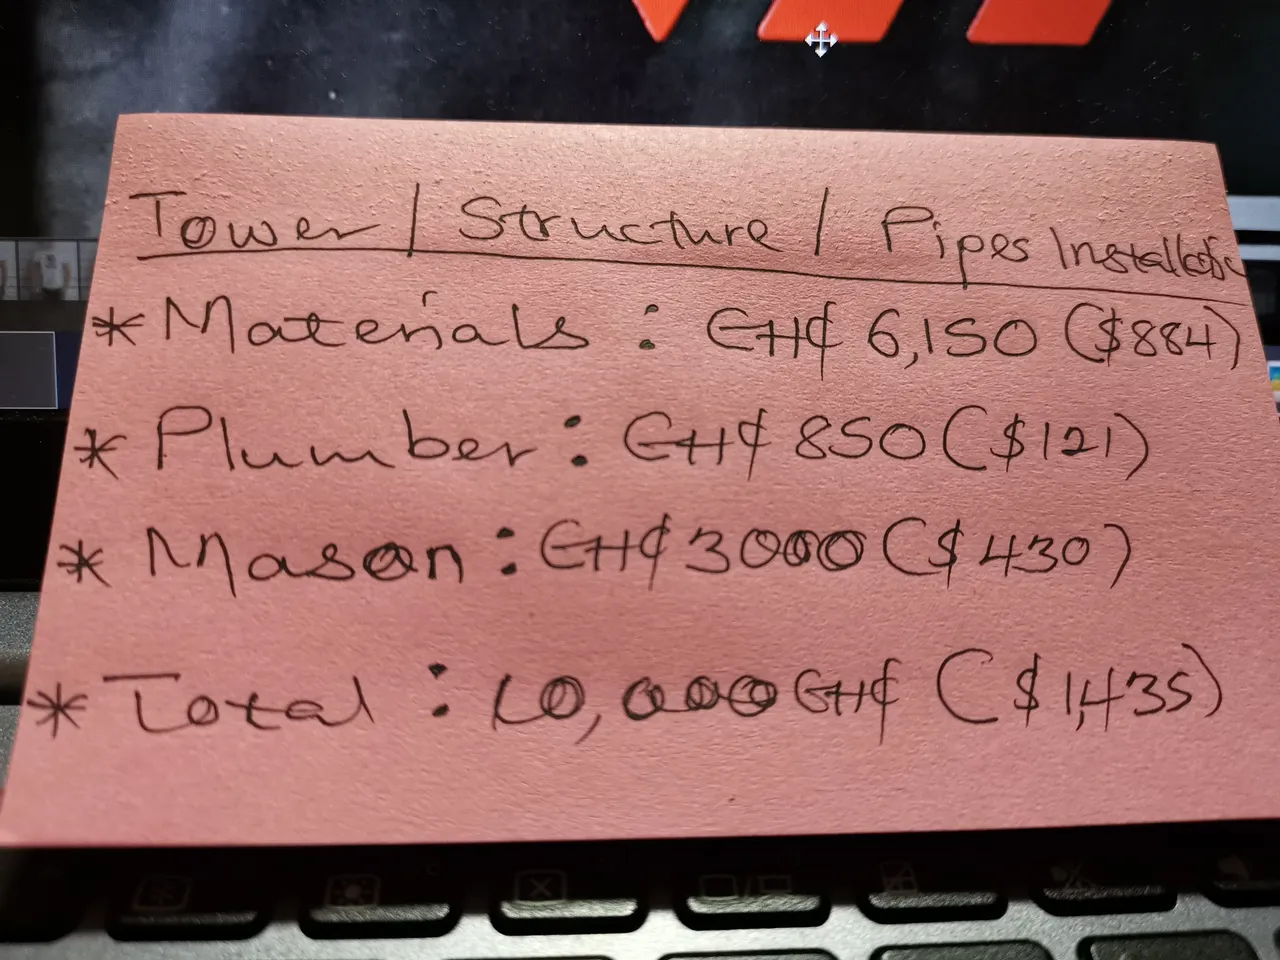 Tower / Structure / Pipes Installation
* Materials : GH¢ 6,150 ($884)
* Plumber : GH¢ 850 ($121)
* Mason : GH¢ 3000 ($430)
* Total : 10,000 GH¢ ($1,435)